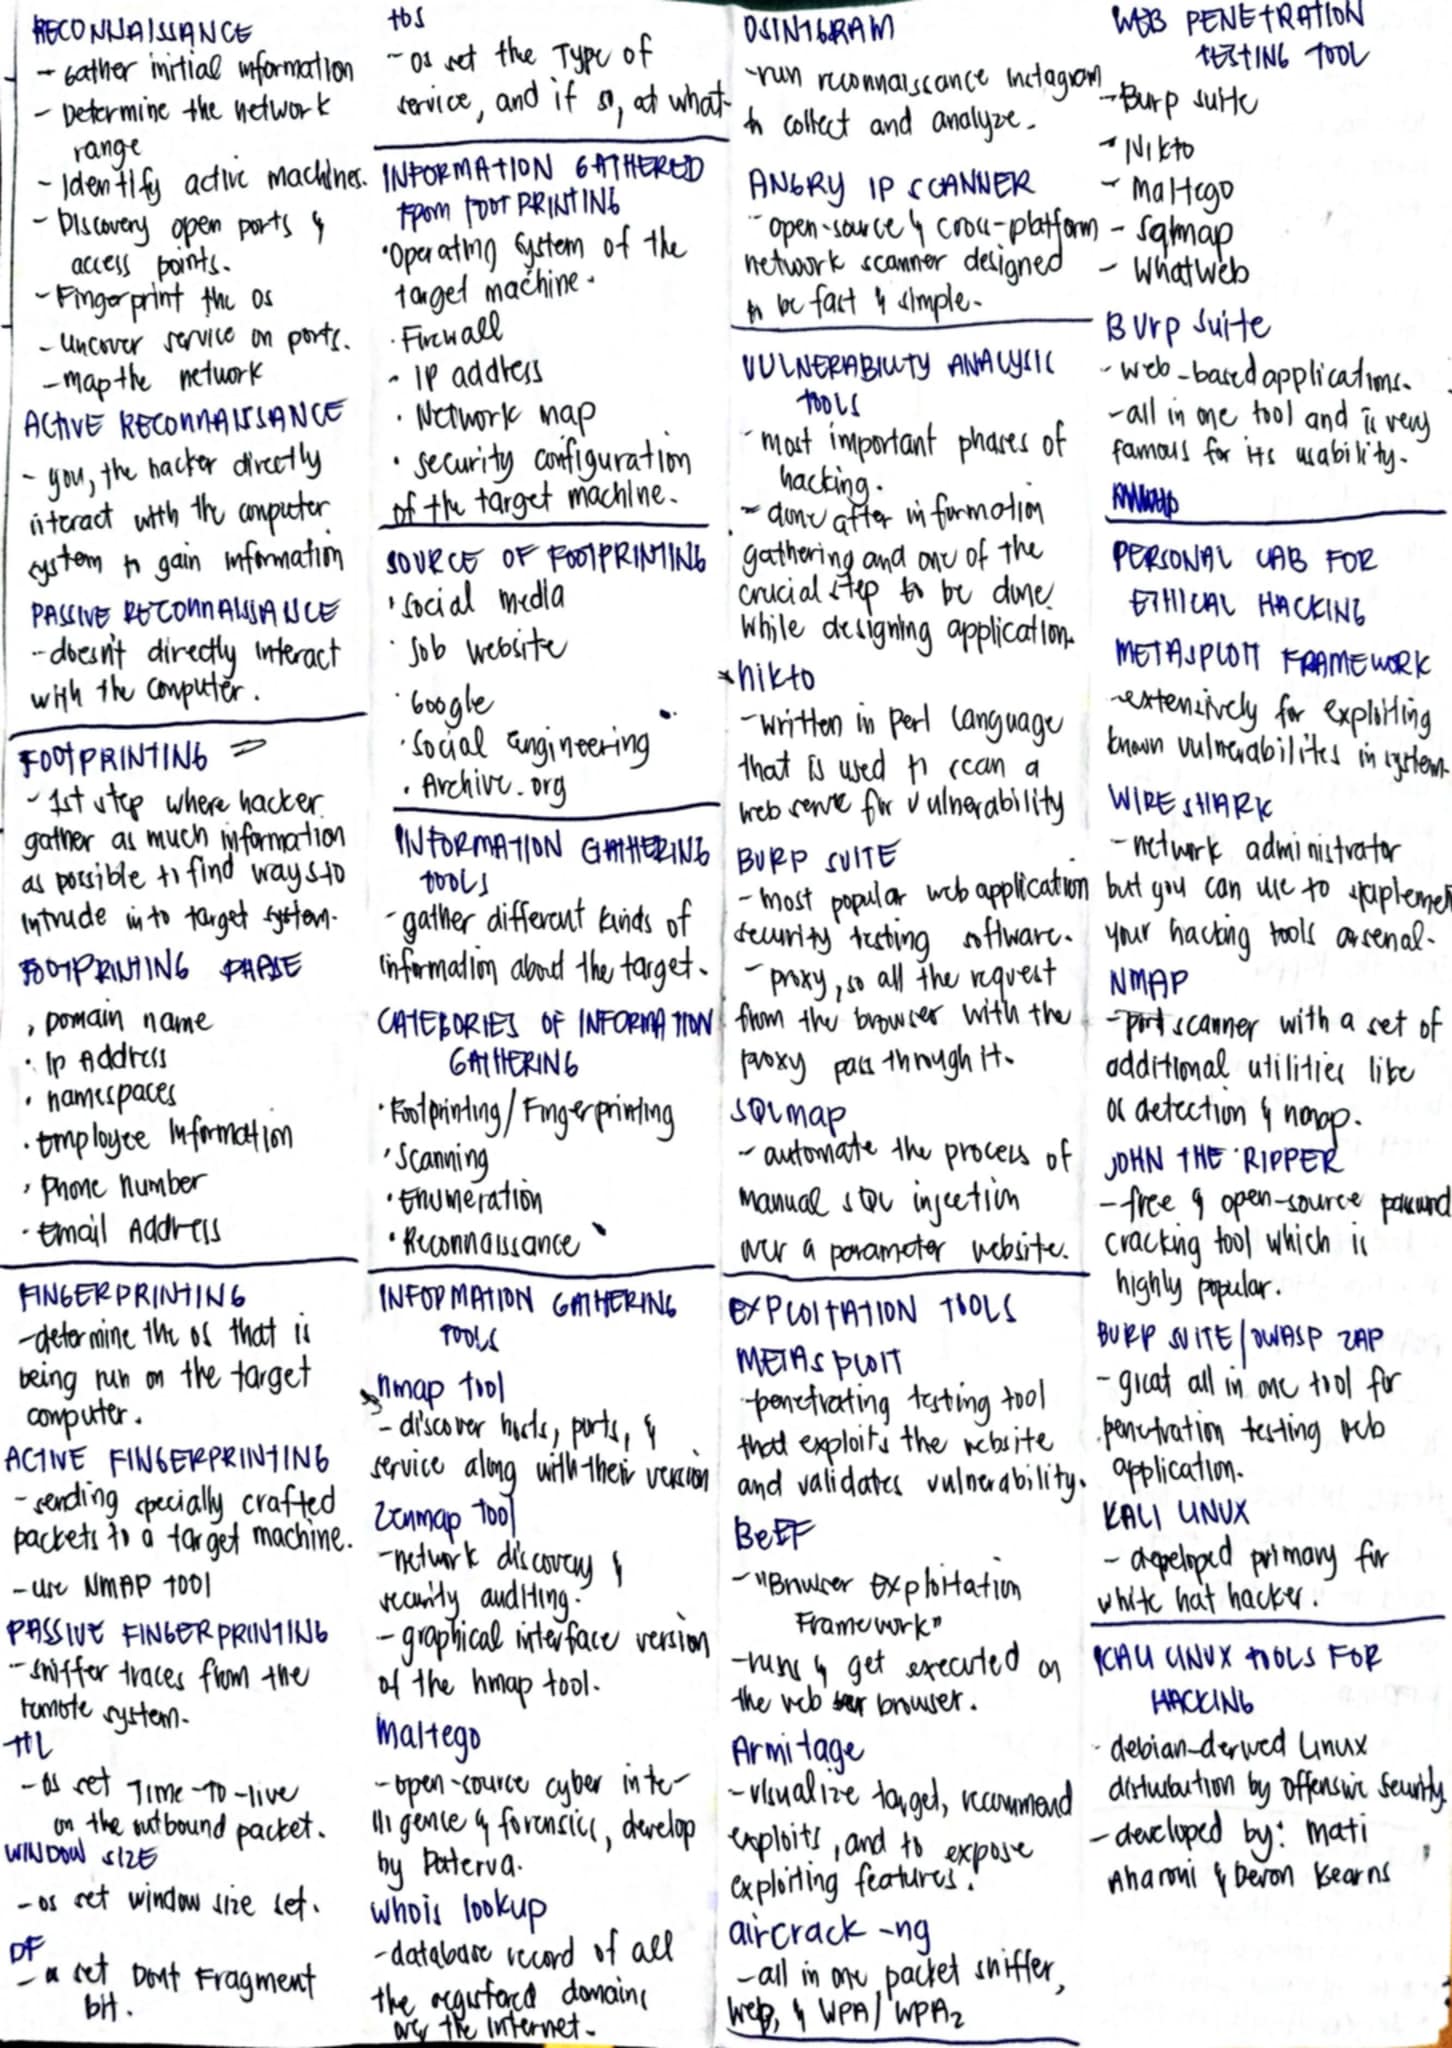 RECONNAISSANCE
- Gather initial information
- Determine the network
range
- Identify active machines.
- Discovery open ports &
access points.
- Fingerprint the OS
- Uncover service on ports.
- map the network
ACTIVE RECONNAISSANCE
- you, the hacker directly
interact with the computer
system to gain information
PASSIVE RECONNAISSANCE
- doesn't directly interact
with the computer.
FOOTPRINTING =>
- 1st step where hacker
gather as much information
as possible to find ways to
intrude in to target system.
FOOTPRINTING PHASE
• Domain name
• Ip Address
• namespaces
• Employee Information
• Phone number
• Email Address
FINGERPRINTING
- determine the OS that is
being run on the target
computer.
ACTIVE FINGERPRINTING
- sending specially crafted
packets to a target machine.
- use NMAP TOOl
PASSIVE FINGERPRINTING
- sniffer traces from the
remote system.
TTL
- OS set Time-To-live
on the outbound packet.
WINDOW SIZE
- OS set window size set.
DF
- set Dont Fragment
bit.
tos
- OS set the Type of
service, and if so, at what
INFORMATION GATHERED
from FOOTPRINTING
• Operating system of the
target machine.
• Firewall
- IP address
• Network map
• security configuration
of the target machine.
SOURCE OF FOOTPRINTING
• Social media
• Job website
• Google
• Social Engineering
• Archive.org
INFORMATION GATHERING
TOOLS
- gather different kinds of
information about the target.
CATEGORIES OF INFORMATION
GATHERING
• Footprinting/Fingerprinting
• Scanning
• Enumeration
• Reconnaissance
INFORMATION GATHERING
TOOLS
nmap tool
- discover hosts, ports, &
service along with their version
Zenmap Tool
- network discovery &
security auditing.
- graphical interface version
of the nmap tool.
Maltego
- open-source cyber inte-
lligence & forensics, develop
by Paterva.
Whois lookup
- database record of all
the registered domains
over the internet.
OSINTGRAM
- run reconnaissance instagram
to collect and analyze.
ANGRY IP SCANNER
- open-source & cross-platform
network scanner designed
to be fast & simple.
VULNERABILITY ANALYSIS
TOOLS
- most important phases of
hacking.
- done after information
gathering and one of the
crucial step to be done
while designing application.
nikto
- written in Perl Language
that is used to scan a
web serve for vulnerability
BURP SUITE
- most popular web application
security testing software.
- proxy, so all the request
from the browser with the
proxy pass through it.
SQLmap
- automate the process of
manual SQL injection
over a parameter website.
EXPLOITATION TOOLS
METASPLOIT
- penetrating testing tool
that exploits the website
and validates vulnerability.
BeEF
- "Browser Exploitation
Framework"
- runs & get executed on
the web browser.
Armitage
- visualize target, recommend
exploits, and to expose
exploiting features.
aircrack -ng
- all in one packet sniffer,
Wep, & WPA/WPA2
WEB PENETRATION
TESTING TOOL
- Burp suite
- Nikto
- Maltego
- Sqlmap
- WhatWeb
Burp Suite
- web-based applications.
- all in one tool and is very
famous for its usability.
PERSONAL LAB FOR
ETHICAL HACKING
METASPLOIT FRAMEWORK
- extensively for exploiting
known vulnerabilites in system.
WIRESHARK
- network administrator
but you can use to
your hacking tools arsenal.
NMAP
- port scanner with a set of
additional utilities like
OS detection & nmap.
JOHN THE RIPPER
- free & open-source password
cracking tool which is
highly popular.
BURP SUITE/OWASP ZAP
- great all in one tool for
penetration testing web
application.
KALI LINUX
- developed primary for
white hat hacker.
KALI LINUX TOOLS FOR
HACKING
- debian-derived Linux
distribution by Offensive Security.
- developed by: Mati
Aharoni & Devon Kearns